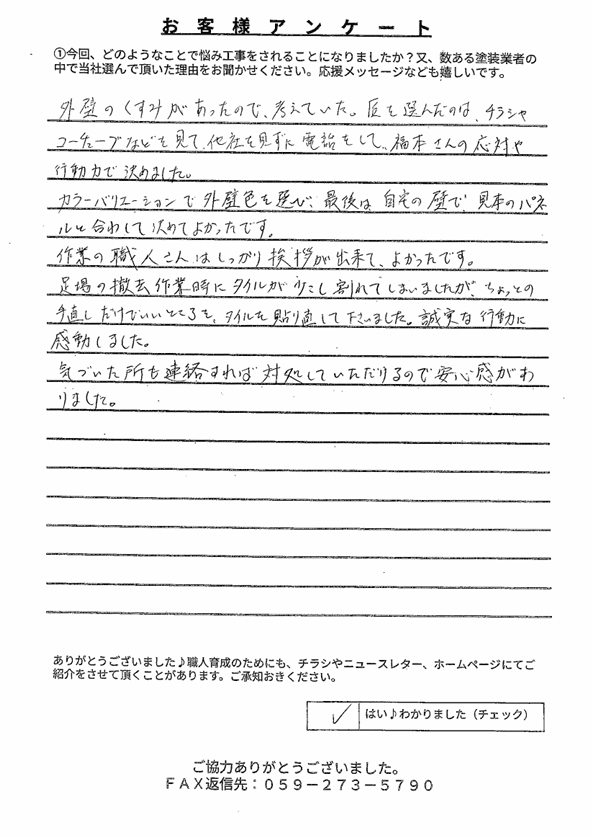 お客様アンケート
①今回、どのようなことで悩み工事をされることになりましたか?又、数ある塗装業者の
中で当社選んで頂いた理由をお聞かせください。応援メッセージなども嬉しいです。
外壁のくすみがあったので、考えていた。匠を選んだのは、チラシや
ユーチューブなどを見て、他社を見ずに電話をして、福本さんの応対や
行動力で決めました。
カラーバリエーションで外壁色を選び、最後は自宅の壁で、見本のパネ
ルと合わして決めてよかったです。
作業の職人さんはしっかり挨拶が出来て、よかったです。
足場の撤去作業時にタイルが少こし割れてしまいましたが、ちょっとの
手直しだけでいいところを、タイルを貼り直して下さいました。誠実な行動に
感動しました。
気づいた所も連絡すれば対処していただけるので安心感がわ
りました。
ありがとうございました♪職人育成のためにも、チラシやニュースレター、ホームページにてご
紹介をさせて頂くことがあります。ご承知おきください。
✓ はい♪わかりました(チェック)
ご協力ありがとうございました。
FAX返信先:059-273-5790